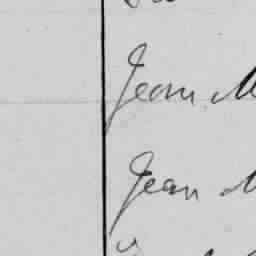 Jean M
Jean M